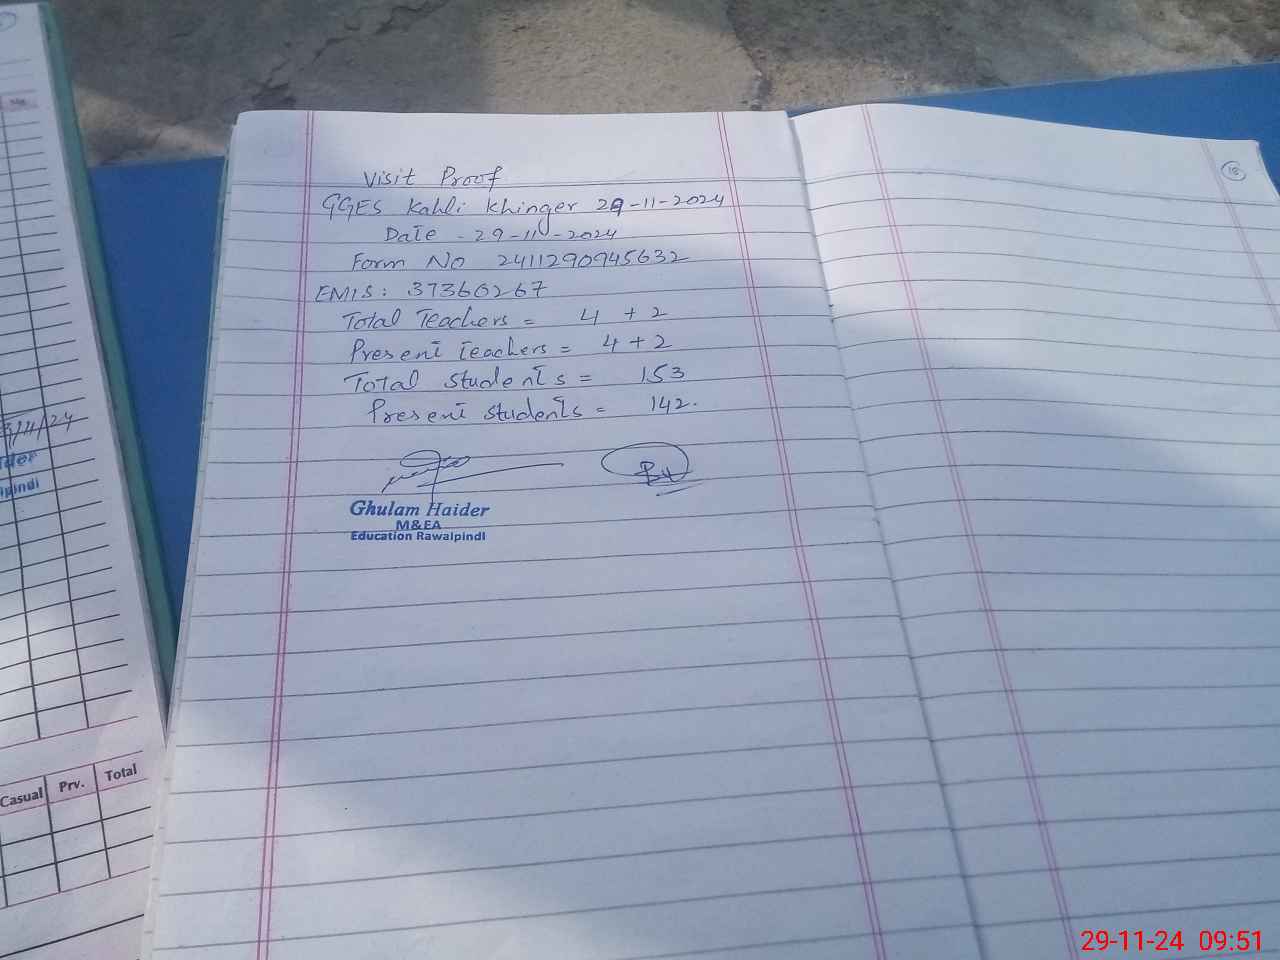 Visit Proof
GGES Kahli Khinger 29-11-2024
Date - 29-11-2024
Form No 2411290945632
EMIS: 37360267
Total Teachers = 4 + 2
Present teachers = 4 + 2
Total students = 153
Present students = 142.
Ghulam Haider
M&EA
Education Rawalpindi
3/4/24
ider
lpindi
Casual Prv. Total
15
29-11-24 09:51